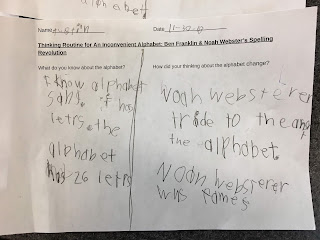 alphabet
Name Austin Date 11-30-18
Thinking Routine for An Inconvenient Alphabet: Ben Franklin & Noah Webster's Spelling
Revolution
What do you know about the alphabet?
I know alphabet
if has
letrs. the
alphabet
has 26 letrs
How did your thinking about the alphabet change?
Noah websterer
tride to the
the alphabet.
Noah websterer
was fames